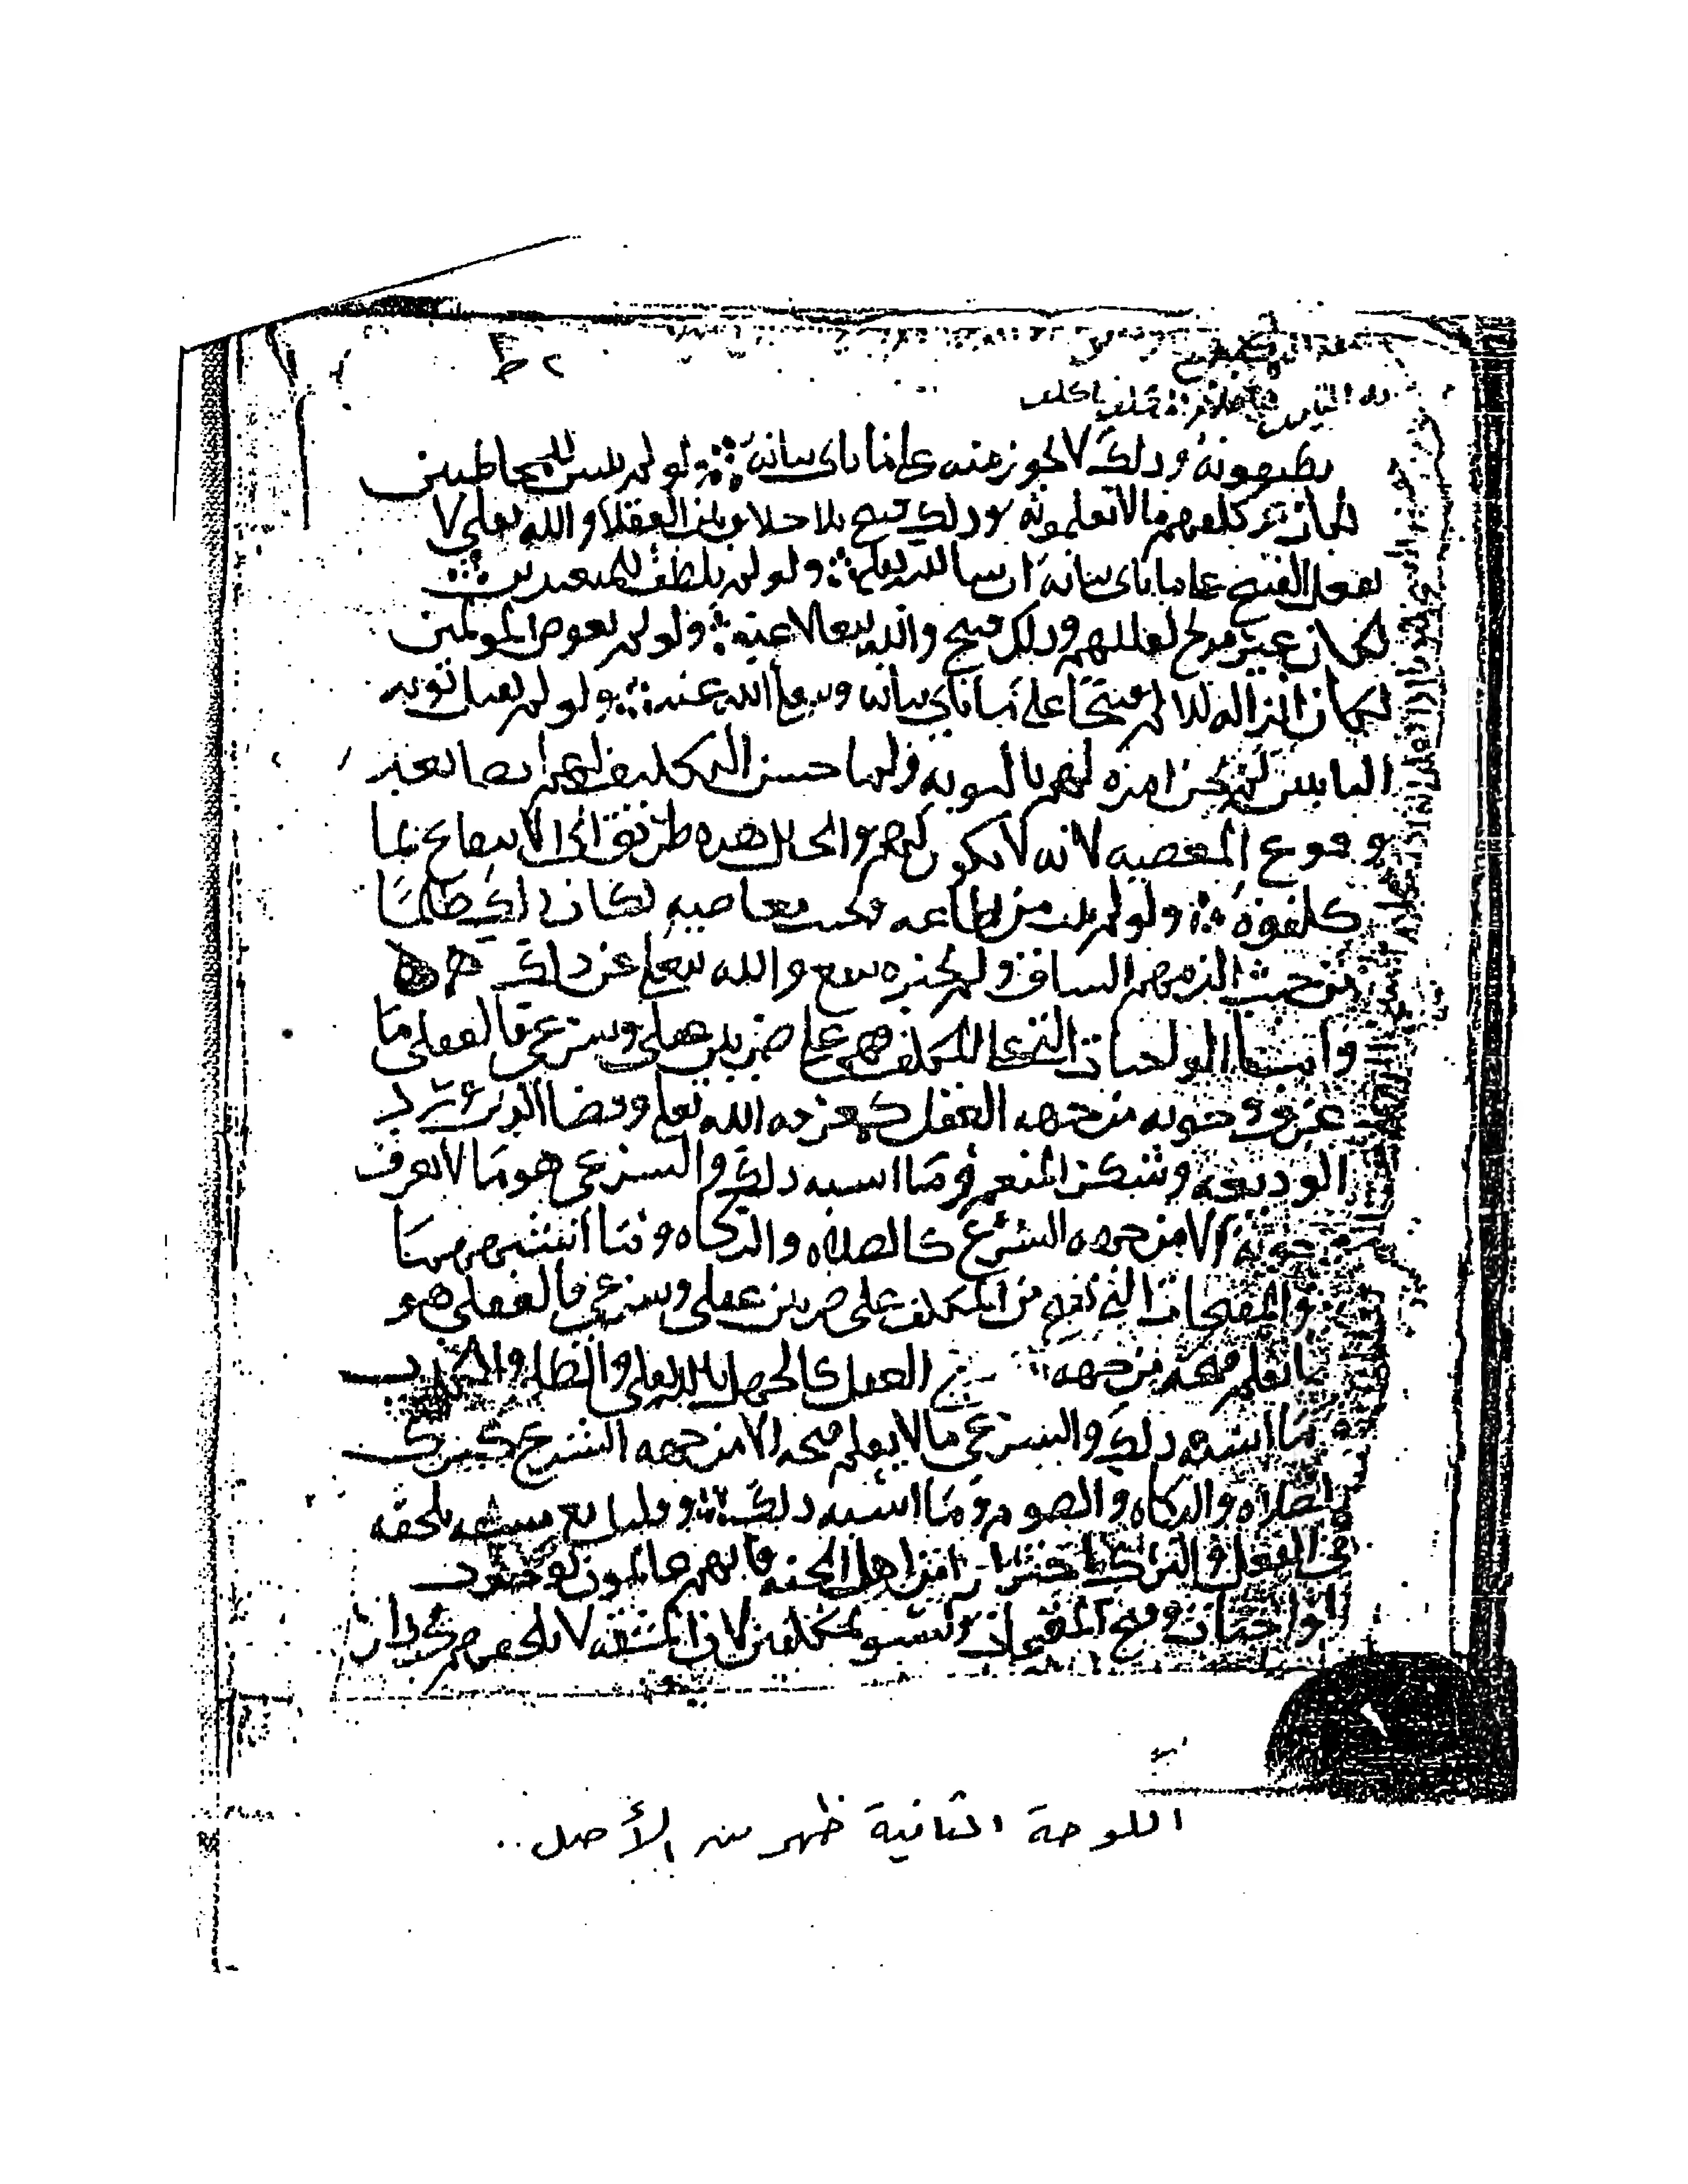 ٢ ط
يطيقونه وذلك لا يجوز منه على ما يأتي بيانه ولو لم يبين للمخاطبين
لكان قد كلفهم ما لا يعلمونه وذلك قبيح بلا خلاف بين العقلاء والله تعالى لا
يفعل القبيح على ما يأتي بيانه ان شا الله تعالى ولو لم يلطف للمتعبدين
لكان غير مزيح لعللهم وذلك قبيح والله يتعالا عنه ولو لم يعوض المؤلمين
لكان انزاله للألم قبيحا على ما يأتي بيانه ويتعالى الله عنه ولو لم يقبل توبه
التايبين لم يحسن امره لهم بالتوبه ولما حسن التكليف لهم ايضا بعد
وقوع المعصيه لانه لا يكون لهم والحال هذه طريق الى الانتفاع بما
كلفوه ولو لم يثب من اطاعه وتجنب معاصيه لكان ذلك ظلما
من حيث الزمهم المشاق ولم يجبره بنفع والله يتعالى عن ذلك
واما الواجبات التي على المكلف فهي على ضربين عقلي وشرعي فالعقلي ما
عرف وجوبه من جهه العقل كمعرفه الله تعالى وقضا الدين ورد
الوديعه وشكر المنعم وما اشبه ذلك والشرعي هو ما لا يعرف
وجوبه الا من جهه الشرع كالصلاه والزكاه وما اشبههما
والمقبحات التي تقع من المكلف على ضربين عقلي وشرعي فالعقلي هو
ما يعلم قبحه من جهه العقل كالجهل بالله تعالى والظلم والكذب
وما اشبه ذلك والشرعي ما لا يعلم قبحه الا من جهه الشرع كترك
الصلاه والزكاه والصوم وما اشبه ذلك وقلنا مع مشقه تلحقه
في الفعل والترك احترازا من اهل الجنه فانهم عالمون بوجوب
الواجبات وقبح المقبحات وليسوا بمكلفين لان المشقه لا تلحقهم
اللوحة الثانية ظهر من الأصل..